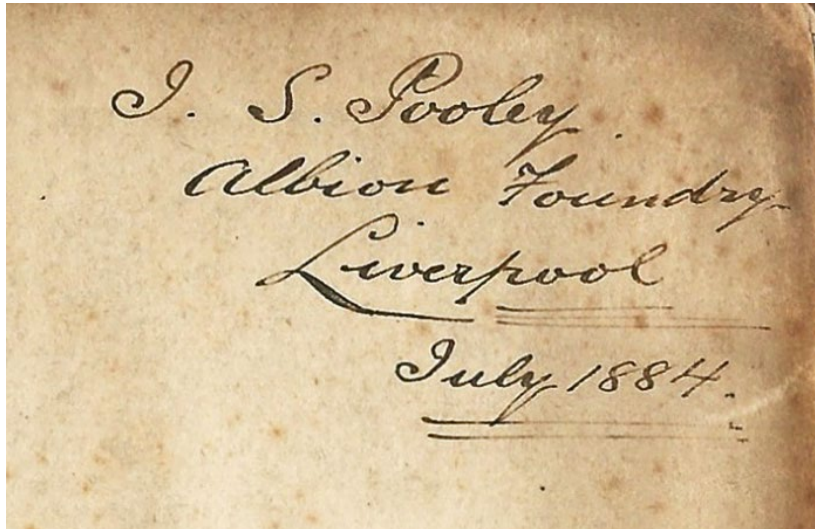 J. S. Pooley.
Albion Foundry
Liverpool
July 1884.